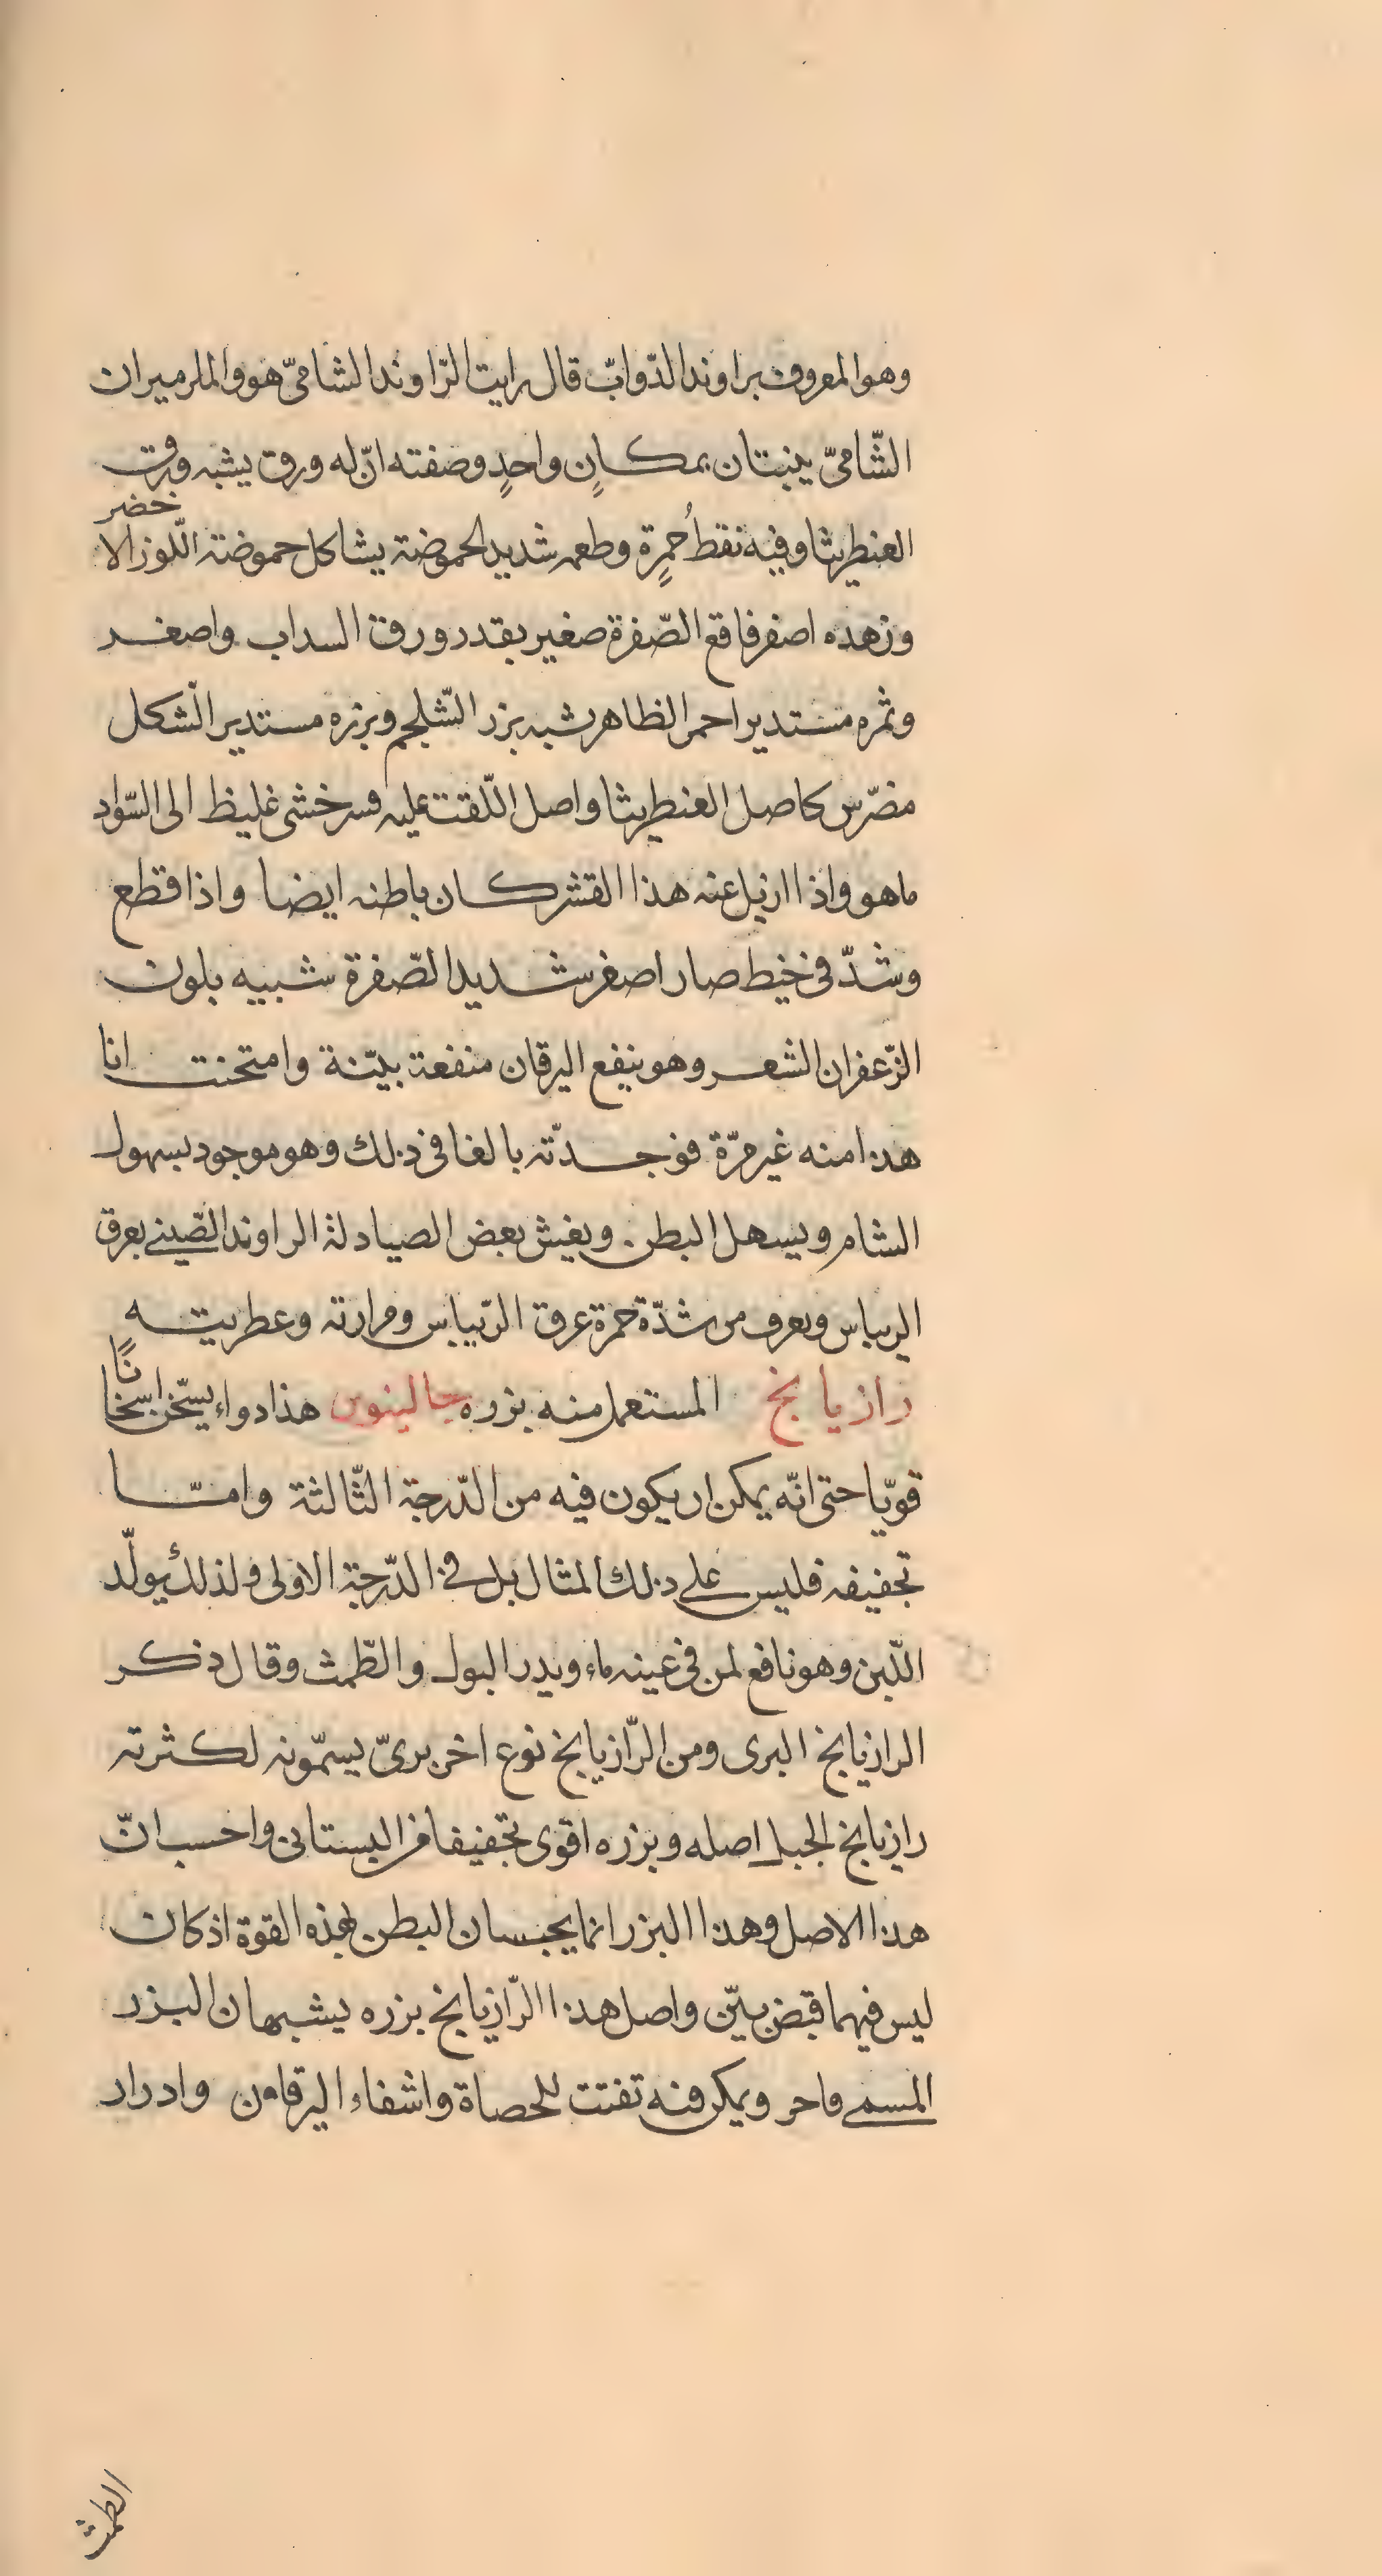 وهو المعروف براوند الدّوابّ قال رايت الرّاوند الشاميّ هو والماميران
الشّاميّ ينبتان بمكانٍ واحدٍ وصفته انّ له ورق يشبه ورق
العنطريثا وفيه نقط حُمرةٍ وطعمه شديد الحموضة يشاكل حموضة اللّوز الاخضر
وزهده اصفر فاقع الصّفرة صغير بقدر ورق السداب واصغر
وثمره مستدير احمر الظاهر شبه بزر الشّلجم وبزره مستدير الشكل
مضرّس كاصل العنطريثا واصل اللّقت عليه قسر خشى غليظ الى السّواد
ماهو واذا ازيل عنه هذا القشر كان باطنه ايضا واذا قطع
وشدّ فى خيط صار اصفر شديد الصّفرة شبيه بلون
الزّعفران الشعر وهو ينفع اليرقان منفعة بيّنة وامتحنت انا
هذا منه غير مرّة فوجدّته بالغا فى ذلك وهو موجود بسهول
الشام ويسهل البطن. ويغيش بعض الصيادلة الراوند الصّينے بعرق
الريباس ويعرف من شدّة حمرة عرق الرّيباس ومرارته وعطريته
رازيانج المستعمل منه بزره جالينوس هذا دواء يسّخن اسخانًا
قويّا حتى انّه يمكن ان يكون فيه من الدّرجة الثّالثة وامّا
تجفيفه فليس على ذلك المثال بل فے الدّرجة الاولى ولذلك يولّد
اللّبن وهو نافع لمن فى عينه ماء ويدر البول والطّمث وقال ذكر
الرازيانج البرى ومن الرّازيانج نوع اخر بريّ يسمّونه لكثرته
رازيانج الجبل اصله وبزره اقوى تجفيفا من البستانى واحسب انّ
هذا الاصل وهذا البزر انما يحبسان البطن بهذه القوة اذ كان
ليس فيهما قبض بيّن واصل هذا الرّازيانج بزره يشبهان البزر
المسمے فاحر ويمكن فنه تفتت للحصاة واشفاء اليرقان وادرار
الطمث